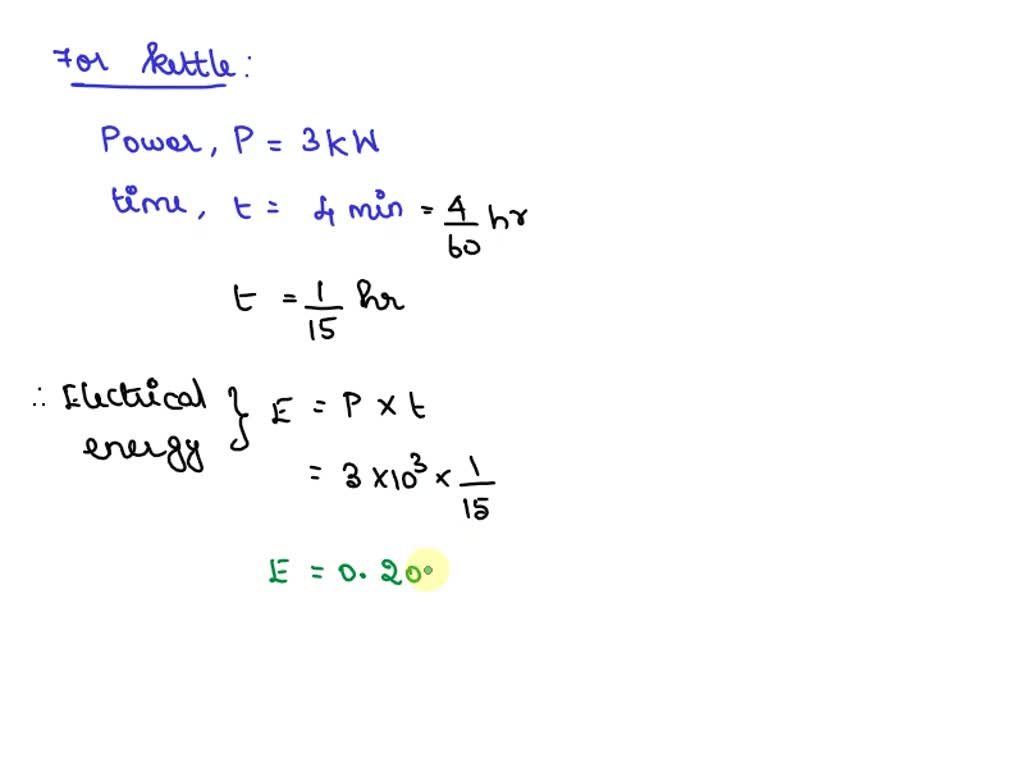 For kettle:
Power, P = 3kW
time, t = 4 min = 4/60 hr
t = 1/15 hr
∴ Electrical energy } E = P × t
= 3 × 10³ × 1/15
E = 0.20